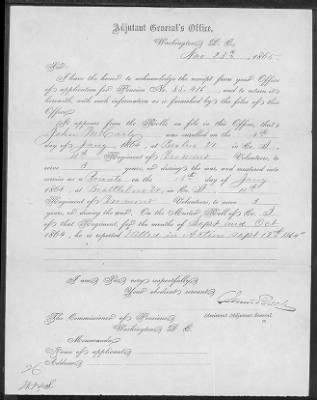 Adjutant General's Office,
Washington, D. C.,
Nov 28th, 1865.
Sir:
I have the honor to acknowledge the receipt from your Office
of application for Pension No. 88.416, and to return it
herewith, with such information as is furnished by the files of this
Office.
It appears from the Rolls on file in this Office, that
John was enrolled on the
day of Jany, 1864, at Vt. in Co.
10th Regiment of Vermont Volunteers, to
serve 3 years, or during the war, and mustered into
service as a Private on the day of Jany,
1864, at Brattleboro Vt., in Co. 10th
Regiment of Vermont Volunteers, to serve 3
years, or during the war. On the Muster Roll of Co.
of that Regiment, for the months of Sept and Oct,
1864, he is reported Killed in Action Sept 19th 1864
I am, Sir, very respectfully,
Your obedient servant,
Assistant Adjutant General.
The Commissioner of Pensions,
Washington, D. C.
Memoranda:
Name of applicant,
Address,